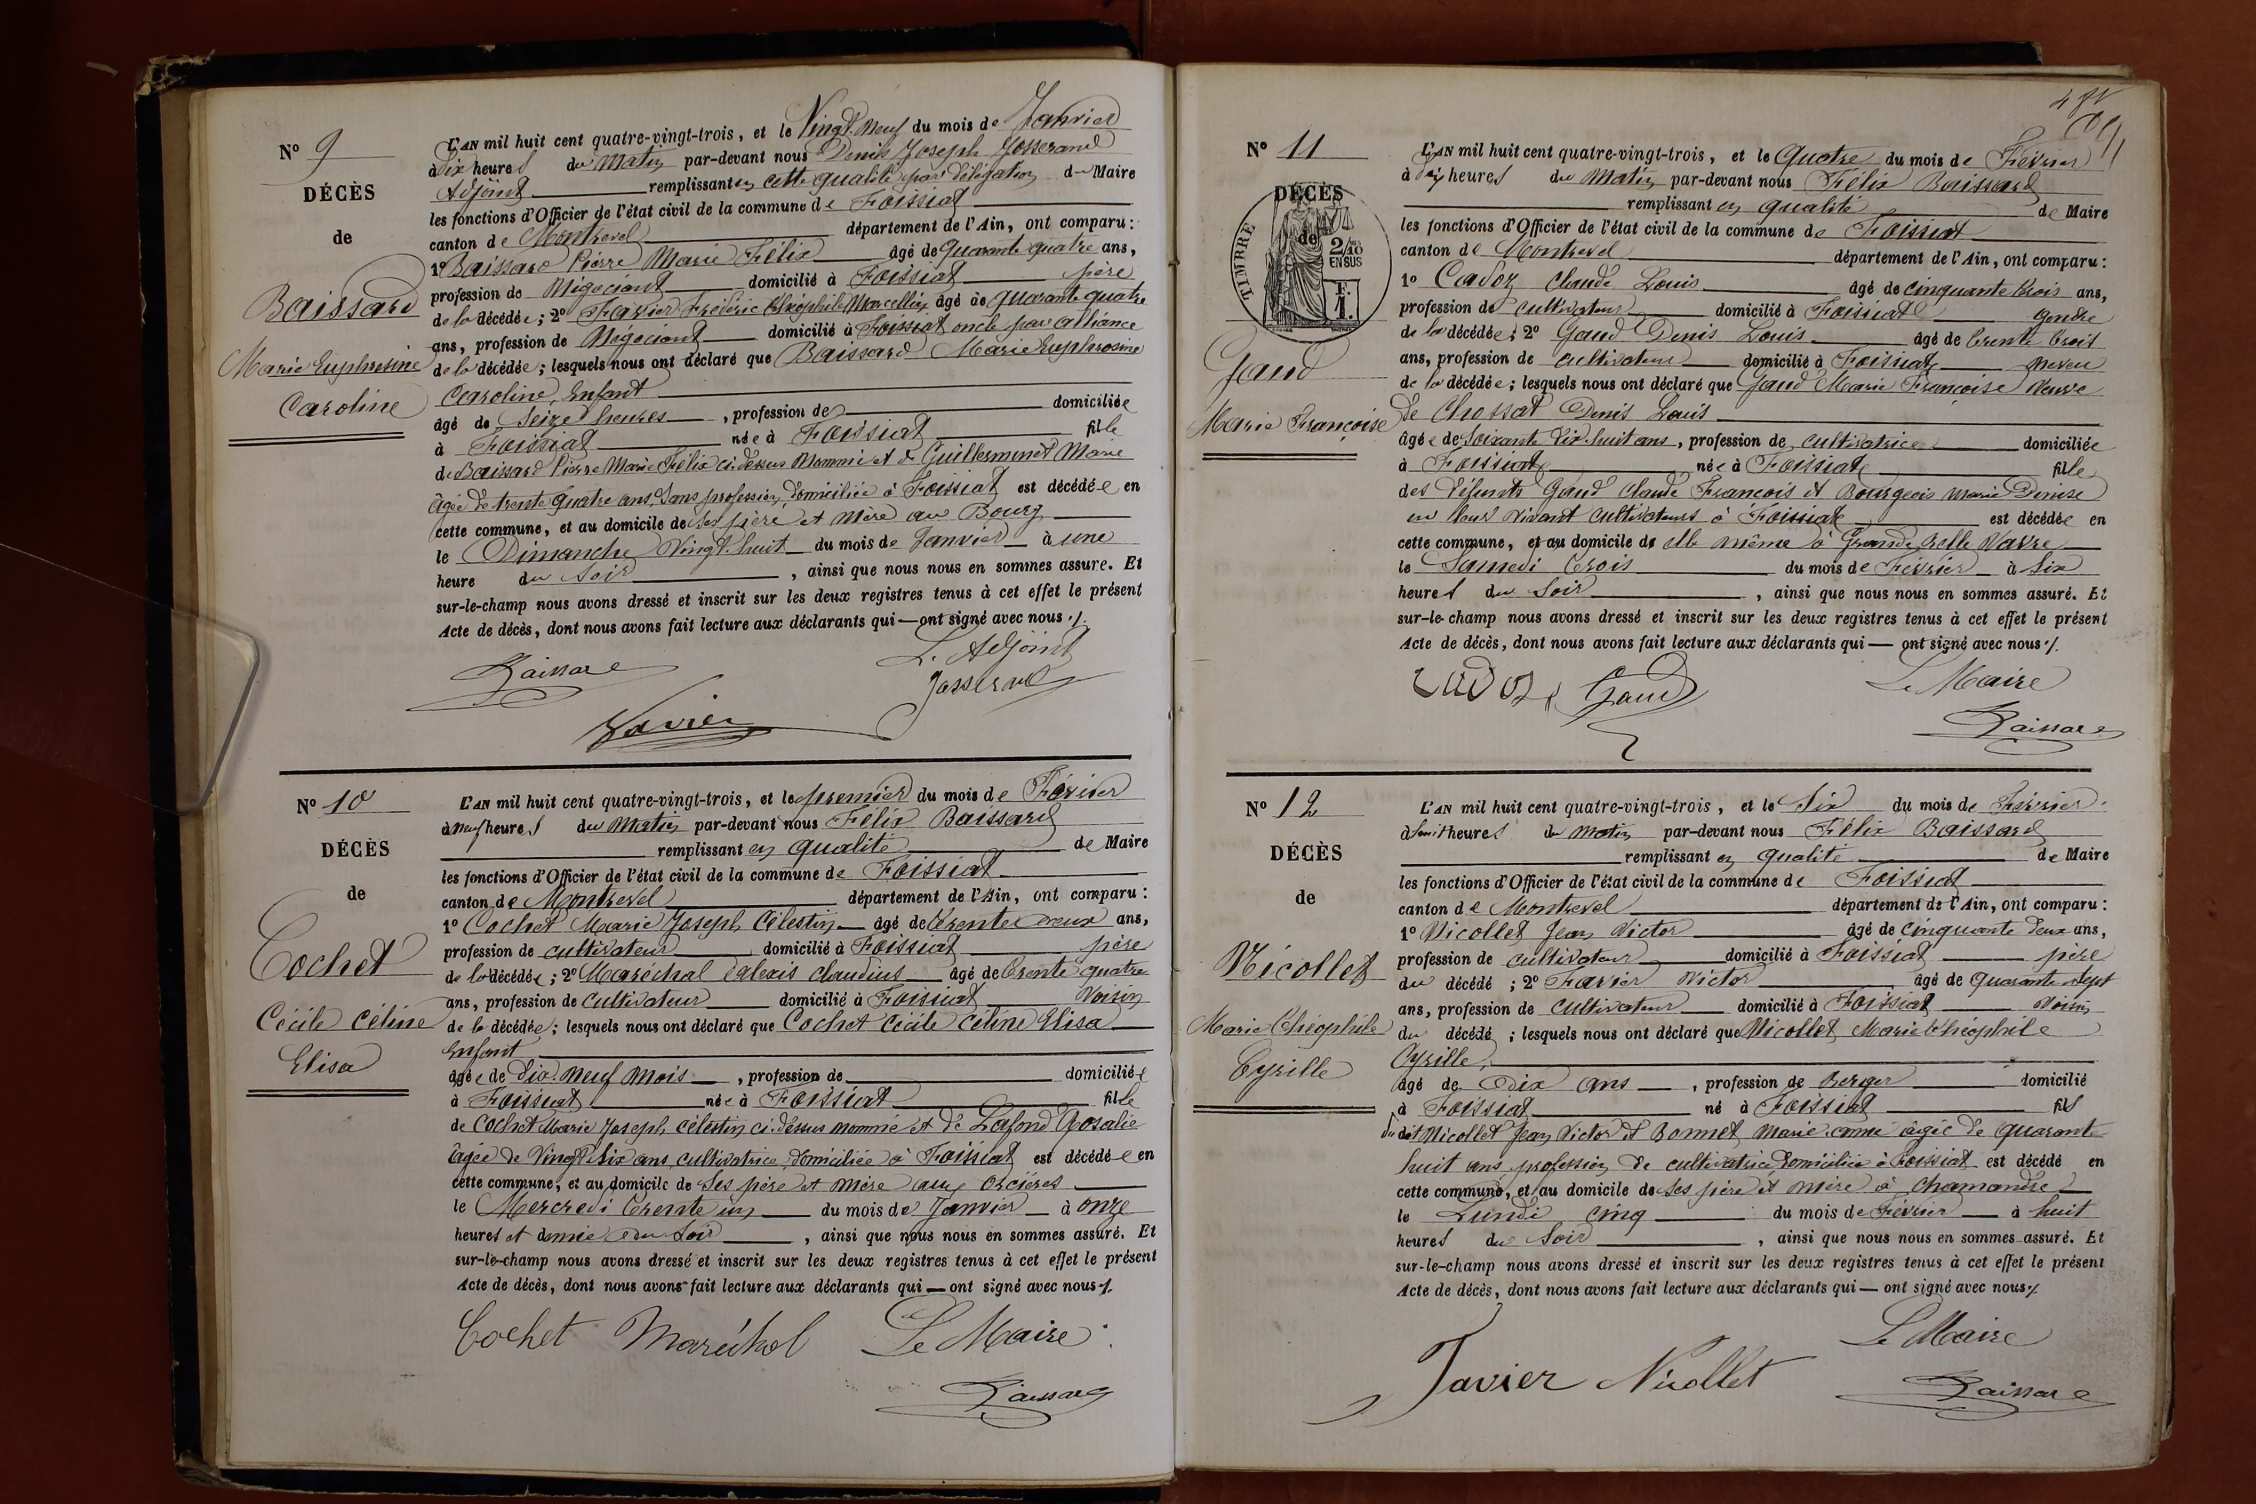 N° 9
DÉCÈS
de
Baissard
Marie Euphrosine
Caroline
L'AN mil huit cent quatre-vingt-trois, et le Vingt Neuf du mois de Janvier
à Dix heures du Matin par-devant nous Denis Joseph Josserand
Adjoint remplissant en cette qualité par délégation du Maire
les fonctions d'Officier de l'état civil de la commune de Foissiat
canton de Montrevel département de l'Ain, ont comparu:
1° Baissard Pierre Marie Félix âgé de quarante quatre ans,
profession de Négociant domicilié à Foissiat père
de la décédée; 2° Favier Frédéric Théophile Marcellin âgé de quarante quatre
ans, profession de Négociant domicilié à Foissiat oncle par alliance
de la décédée; lesquels nous ont déclaré que Baissard Marie Euphrosine
Caroline, Enfant
âgé de Seize heures, profession de domiciliée
à Foissiat née à Foissiat fille
de Baissard Pierre Marie Félix ci-dessus Nommé et de Guillerminet Marie
âgée de trente quatre ans, Sans profession, domiciliée à Foissiat est décédée en
cette commune, et au domicile de ses père et Mère au Bourg
le Dimanche Vingt-huit du mois de Janvier à une
heure du Soir, ainsi que nous nous en sommes assuré. Et
sur-le-champ nous avons dressé et inscrit sur les deux registres tenus à cet effet le présent
Acte de décès, dont nous avons fait lecture aux déclarants qui — ont signé avec nous ./.
Baissard
L'Adjoint
Josserand
Favier
N° 10
DÉCÈS
de
Cochet
Cécile Céline
Elisa
L'AN mil huit cent quatre-vingt-trois, et le premier du mois de Février
à neuf heures du Matin par-devant nous Félix Baissard
remplissant en qualité de Maire
les fonctions d'Officier de l'état civil de la commune de Foissiat
canton de Montrevel département de l'Ain, ont comparu:
1° Cochet Marie Joseph Célestin âgé de trente deux ans,
profession de cultivateur domicilié à Foissiat père
de la décédée; 2° Maréchal Claudius âgé de trente quatre
ans, profession de cultivateur domicilié à Foissiat Voisin
de la décédée; lesquels nous ont déclaré que Cochet Cécile Céline Elisa
Enfant
âgée de Dix-Neuf Mois, profession de domiciliée
à Foissiat née à Foissiat fille
de Cochet Marie Joseph Célestin ci-dessus nommé et de Lafond Rosalie
âgée de Vingt-Six ans, cultivatrice, domiciliée à Foissiat est décédée en
cette commune, et au domicile de ses père et mère aux Orcières
le Mercredi trente un du mois de Janvier à onze
heures et demie du soir, ainsi que nous nous en sommes assuré. Et
sur-le-champ nous avons dressé et inscrit sur les deux registres tenus à cet effet le présent
Acte de décès, dont nous avons fait lecture aux déclarants qui — ont signé avec nous ./.
Cochet Maréchal Le Maire
Baissard
N° 11
DÉCÈS
de
TIMBRE
2/10
EN SUS
F.
1.
Gaud
Marie Françoise
L'AN mil huit cent quatre-vingt-trois, et le Quatre du mois de Février
à heures du Matin par-devant nous Félix Baissard
remplissant en qualité de Maire
les fonctions d'Officier de l'état civil de la commune de Foissiat
canton de Montrevel département de l'Ain, ont comparu:
1° Cadoz Claude Louis âgé de cinquante trois ans,
profession de cultivateur domicilié à Foissiat Gendre
de la décédée; 2° Gaud Denis Louis âgé de trente trois
ans, profession de cultivateur domicilié à Foissiat neveu
de la décédée; lesquels nous ont déclaré que Gaud Marie Françoise Veuve
de Chossat Denis Louis
âgée de soixante dix-huit ans, profession de cultivatrice domiciliée
à Foissiat née à Foissiat fille
des défunts Gaud Claude François et Bourgeois Marie Denise
en leur vivant cultivateurs à Foissiat est décédée en
cette commune, et au domicile de elle même à Grande
le Samedi trois du mois de Février à Six
heures du Soir, ainsi que nous nous en sommes assuré. Et
sur-le-champ nous avons dressé et inscrit sur les deux registres tenus à cet effet le présent
Acte de décès, dont nous avons fait lecture aux déclarants qui — ont signé avec nous ./.
Cadoz Gaud
Le Maire
Baissard
N° 12
DÉCÈS
de
Nicollet
Marie Théophile
Cyrille
L'AN mil huit cent quatre-vingt-trois, et le Six du mois de Février
à huit heures du matin par-devant nous Félix Baissard
remplissant en qualité de Maire
les fonctions d'Officier de l'état civil de la commune de Foissiat
canton de Montrevel département de l'Ain, ont comparu:
1° Nicollet Jean Victor âgé de cinquante deux ans,
profession de cultivateur domicilié à Foissiat père
du décédé; 2° Favier Victor âgé de quarante sept
ans, profession de cultivateur domicilié à Foissiat Voisin
du décédé; lesquels nous ont déclaré que Nicollet Marie Théophile
Cyrille,
âgé de Dix ans, profession de Berger domicilié
à Foissiat né à Foissiat fils
du dit Nicollet Jean Victor et Bonnet Marie âgée de quarante
huit ans profession de cultivatrice domiciliée à Foissiat est décédé en
cette commune, et au domicile de ses père et mère à Chamandre
le Lundi cinq du mois de Février à huit
heures du Soir, ainsi que nous nous en sommes assuré. Et
sur-le-champ nous avons dressé et inscrit sur les deux registres tenus à cet effet le présent
Acte de décès, dont nous avons fait lecture aux déclarants qui — ont signé avec nous ./.
Le Maire
Favier Nicollet
Baissard